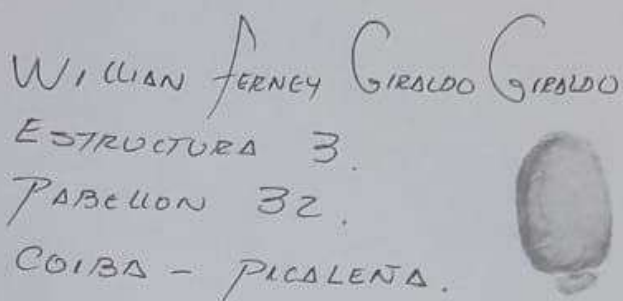 WILLIAN FERNEY GIRALDO GIRALDO
ESTRUCTURA 3.
PABELLON 32.
COIBA - PICALEÑA.